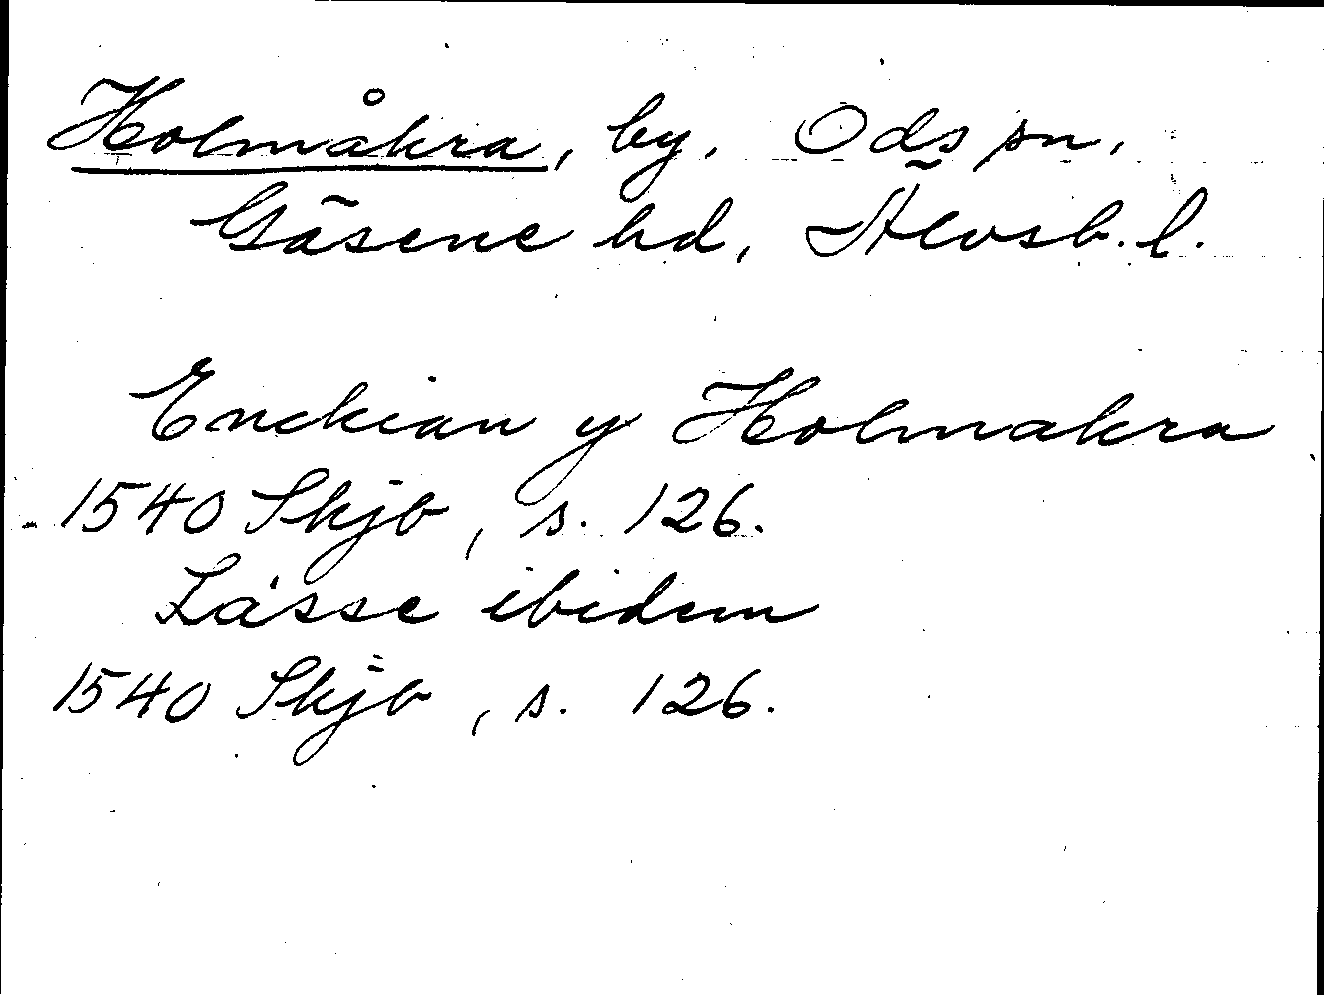 Holmåkra, by, Ods sn,
Gäsene hd, Älvsb. l.
Enckian y Holmakra
1540 Skjb, s. 126.
Lasse ibidem
1540 Skjb, s. 126.